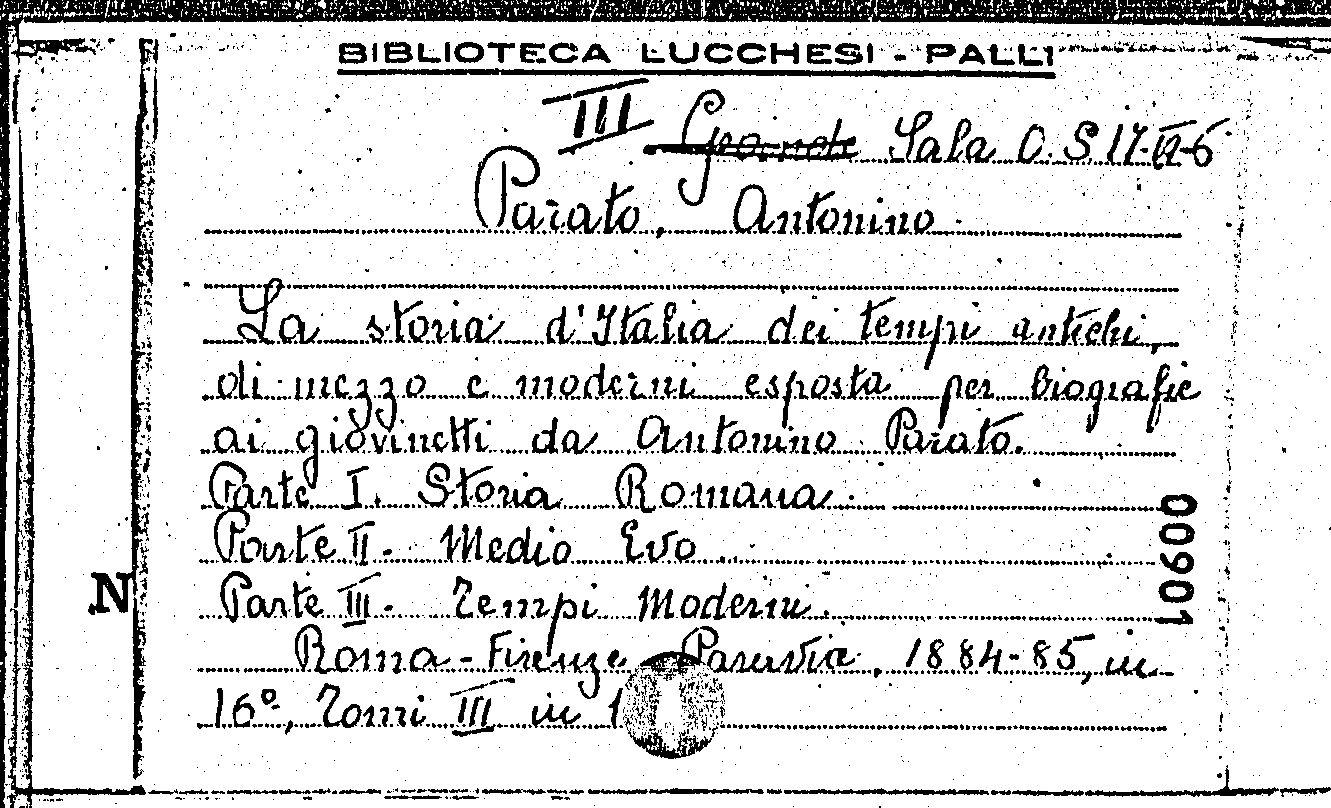 BIBLIOTECA LUCCHESI - PALLI
III Sala C. S 17-VI-6
Parato, Antonino.
La storia d'Italia dei tempi antichi,
di mezzo e moderni esposta per biografie
ai giovinetti da Antonino Parato.
Parte I. Storia Romana.
Parte II. Medio Evo
Parte III. Tempi Moderni.
Roma - Firenze Paravia, 1884-85, in
16º, Tomi III in 1
N
00901